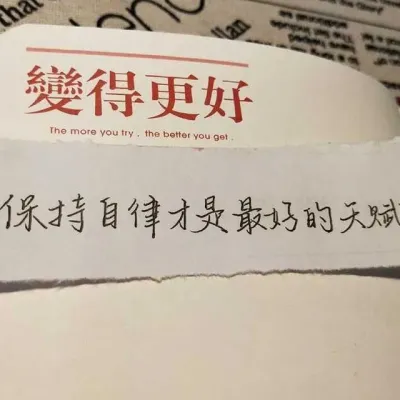 變得更好
The more you try , the better you get .
保持自律才是最好的天赋